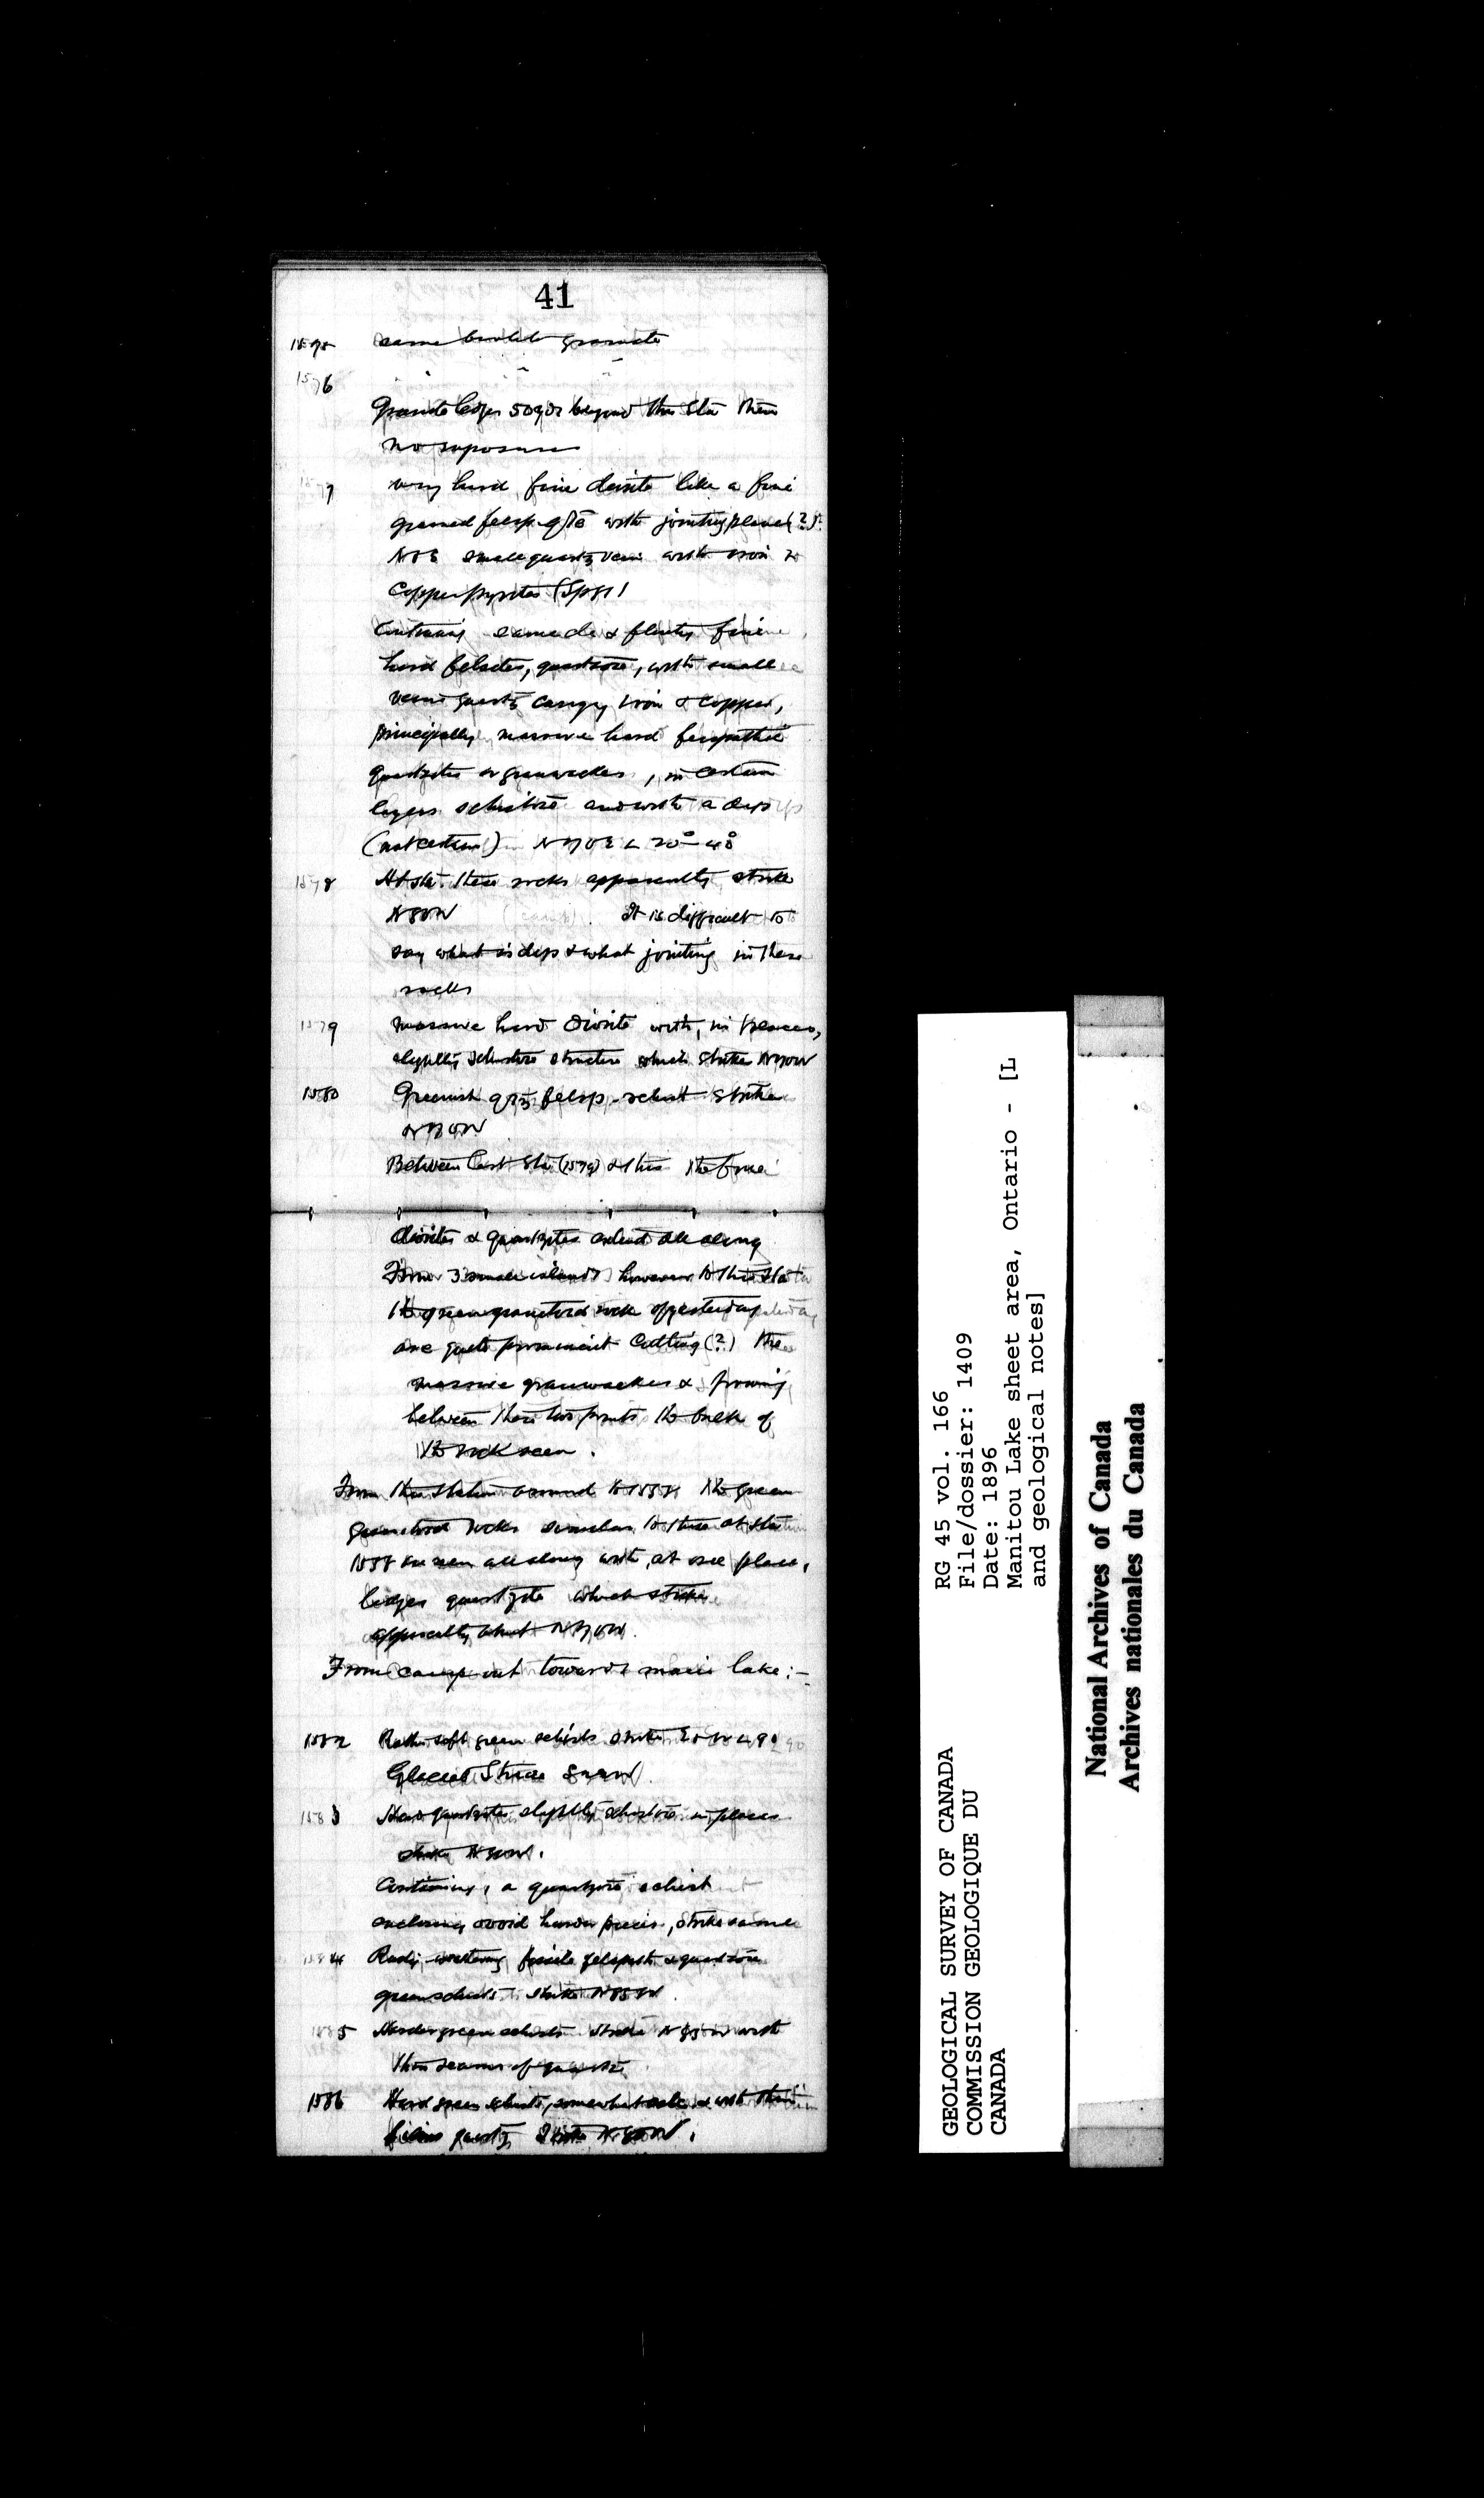 41
1575 same biotite granite
1576 " " "
Granite ledges 50 yds beyond this Sta then
no exposures
1577 very hard, fine diorite like a fine
grained felsp. qtzte with jointing planes (?)
small quartz vein with iron &
Copper pyrites (Spec)
Continuing same do & flinty fine
hard felsites, quartzose, with small
veins quartz carryg iron & copper,
principally massive hard felspathic
quartzites or grauwackes, in certain
layers schistose and with a dip
(not certain) N70E ∠ 20°-40°
1578 At sta. these rocks apparently strike
N80W It is difficult to
say what is dip & what jointing in these
rocks
1579 massive hard diorite with, in places,
slightly schistose structure which strikes N70W
1580 Greenish qtz felsp. schist strike
N70W
Between last Sta (1579) & this the fine
diorites & quartzites extend all along
From 3 small islands however to this Sta
the green granitoid rocks of yesterday
are quite prominent cutting (?) the
massive grauwackes & forming
between these two points the bulk of
the rock seen.
From this station around to the green
granitoid rocks similar to those at station
1558 are seen all along with, at one place,
ledges quartzite which strike
apparently about N70W.
From camp out towards main lake:-
1582 Rather soft green schists strike E & W ∠ 90
Glacial Striae
1583 Hard quartzites slightly schistose in places
strike N80W.
Continuing, a quartzose schist
enclosing ovoid harder pieces, strike same
1584 Rusty weathering fissile felspath. & quartzose
green schists strike N85W.
1585 Harder green schists strike N85W with
thin seams of quartz
1586 Hard green schists, somewhat and with thin
quartz Strike N80W.
GEOLOGICAL SURVEY OF CANADA
COMMISSION GEOLOGIQUE DU
CANADA
RG 45 vol. 166
File/dossier: 1409
Date: 1896
Manitou Lake sheet area, Ontario - [L
and geological notes]
National Archives of Canada
Archives nationales du Canada